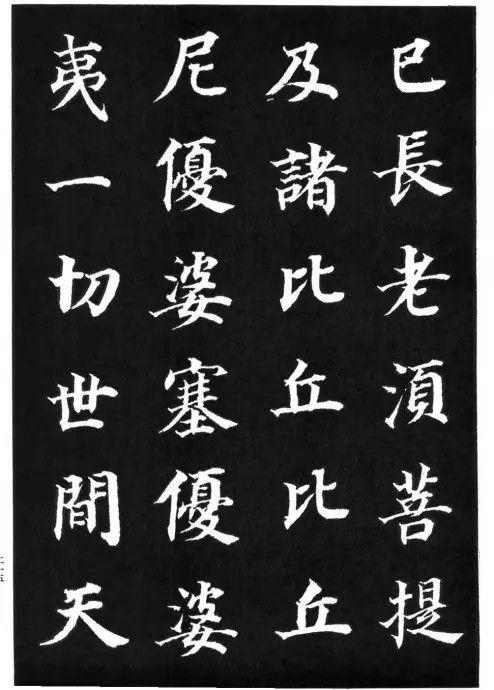 已長老湏菩提
及諸比丘比丘
尼優婆塞優婆
夷一切世間天